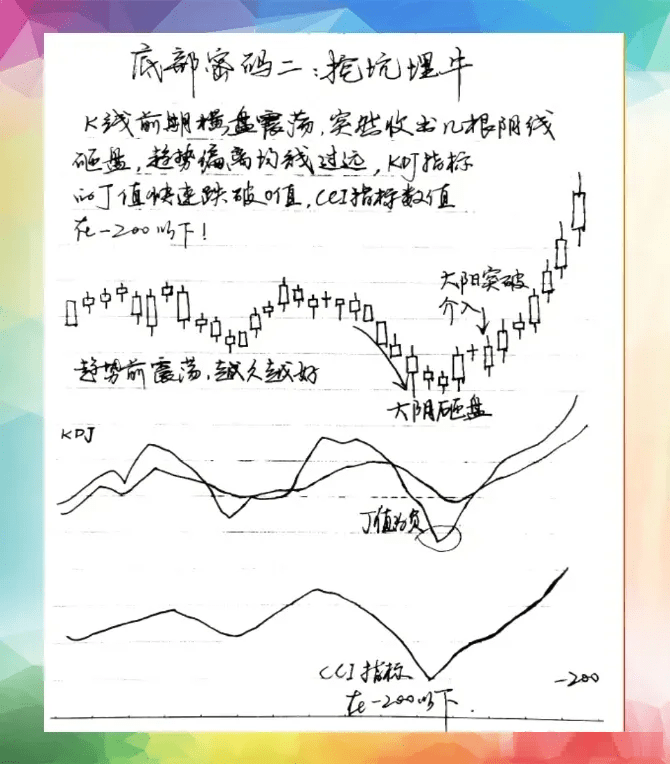 底部密码二：挖坑埋牛
K线前期横盘震荡，突然收出几根阴线
砸盘，趋势偏离均线过远，KDJ指标
的J值快速跌破0值，CCI指标数值
在-200以下！
大阳突破
介入
趋势前震荡，越久越好
大阴砸盘
KDJ
J值为负
CCI指标
在-200以下.
-200